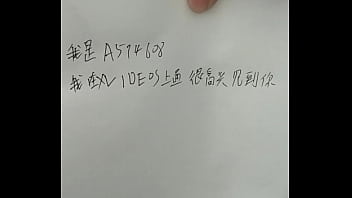 我是A574608
我在XVIDEOS上面 很高兴见到你